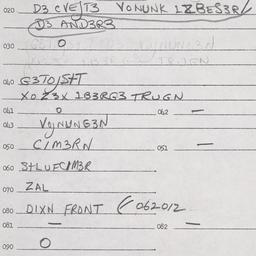 020 D3 CVE/T3 VONUNK LZBES3R/
D3 AND3R3
030 O
040 G3TO/S+T
XOZ3X 1B3RG3 TRUGN
041 O 042 —
043 VOJNUNG3N
050 C/M3RN 051 —
060 S+LUFC/M3R
070 ZAL
080 DIXN FRONT (/062012
081 — 082 —
090 O